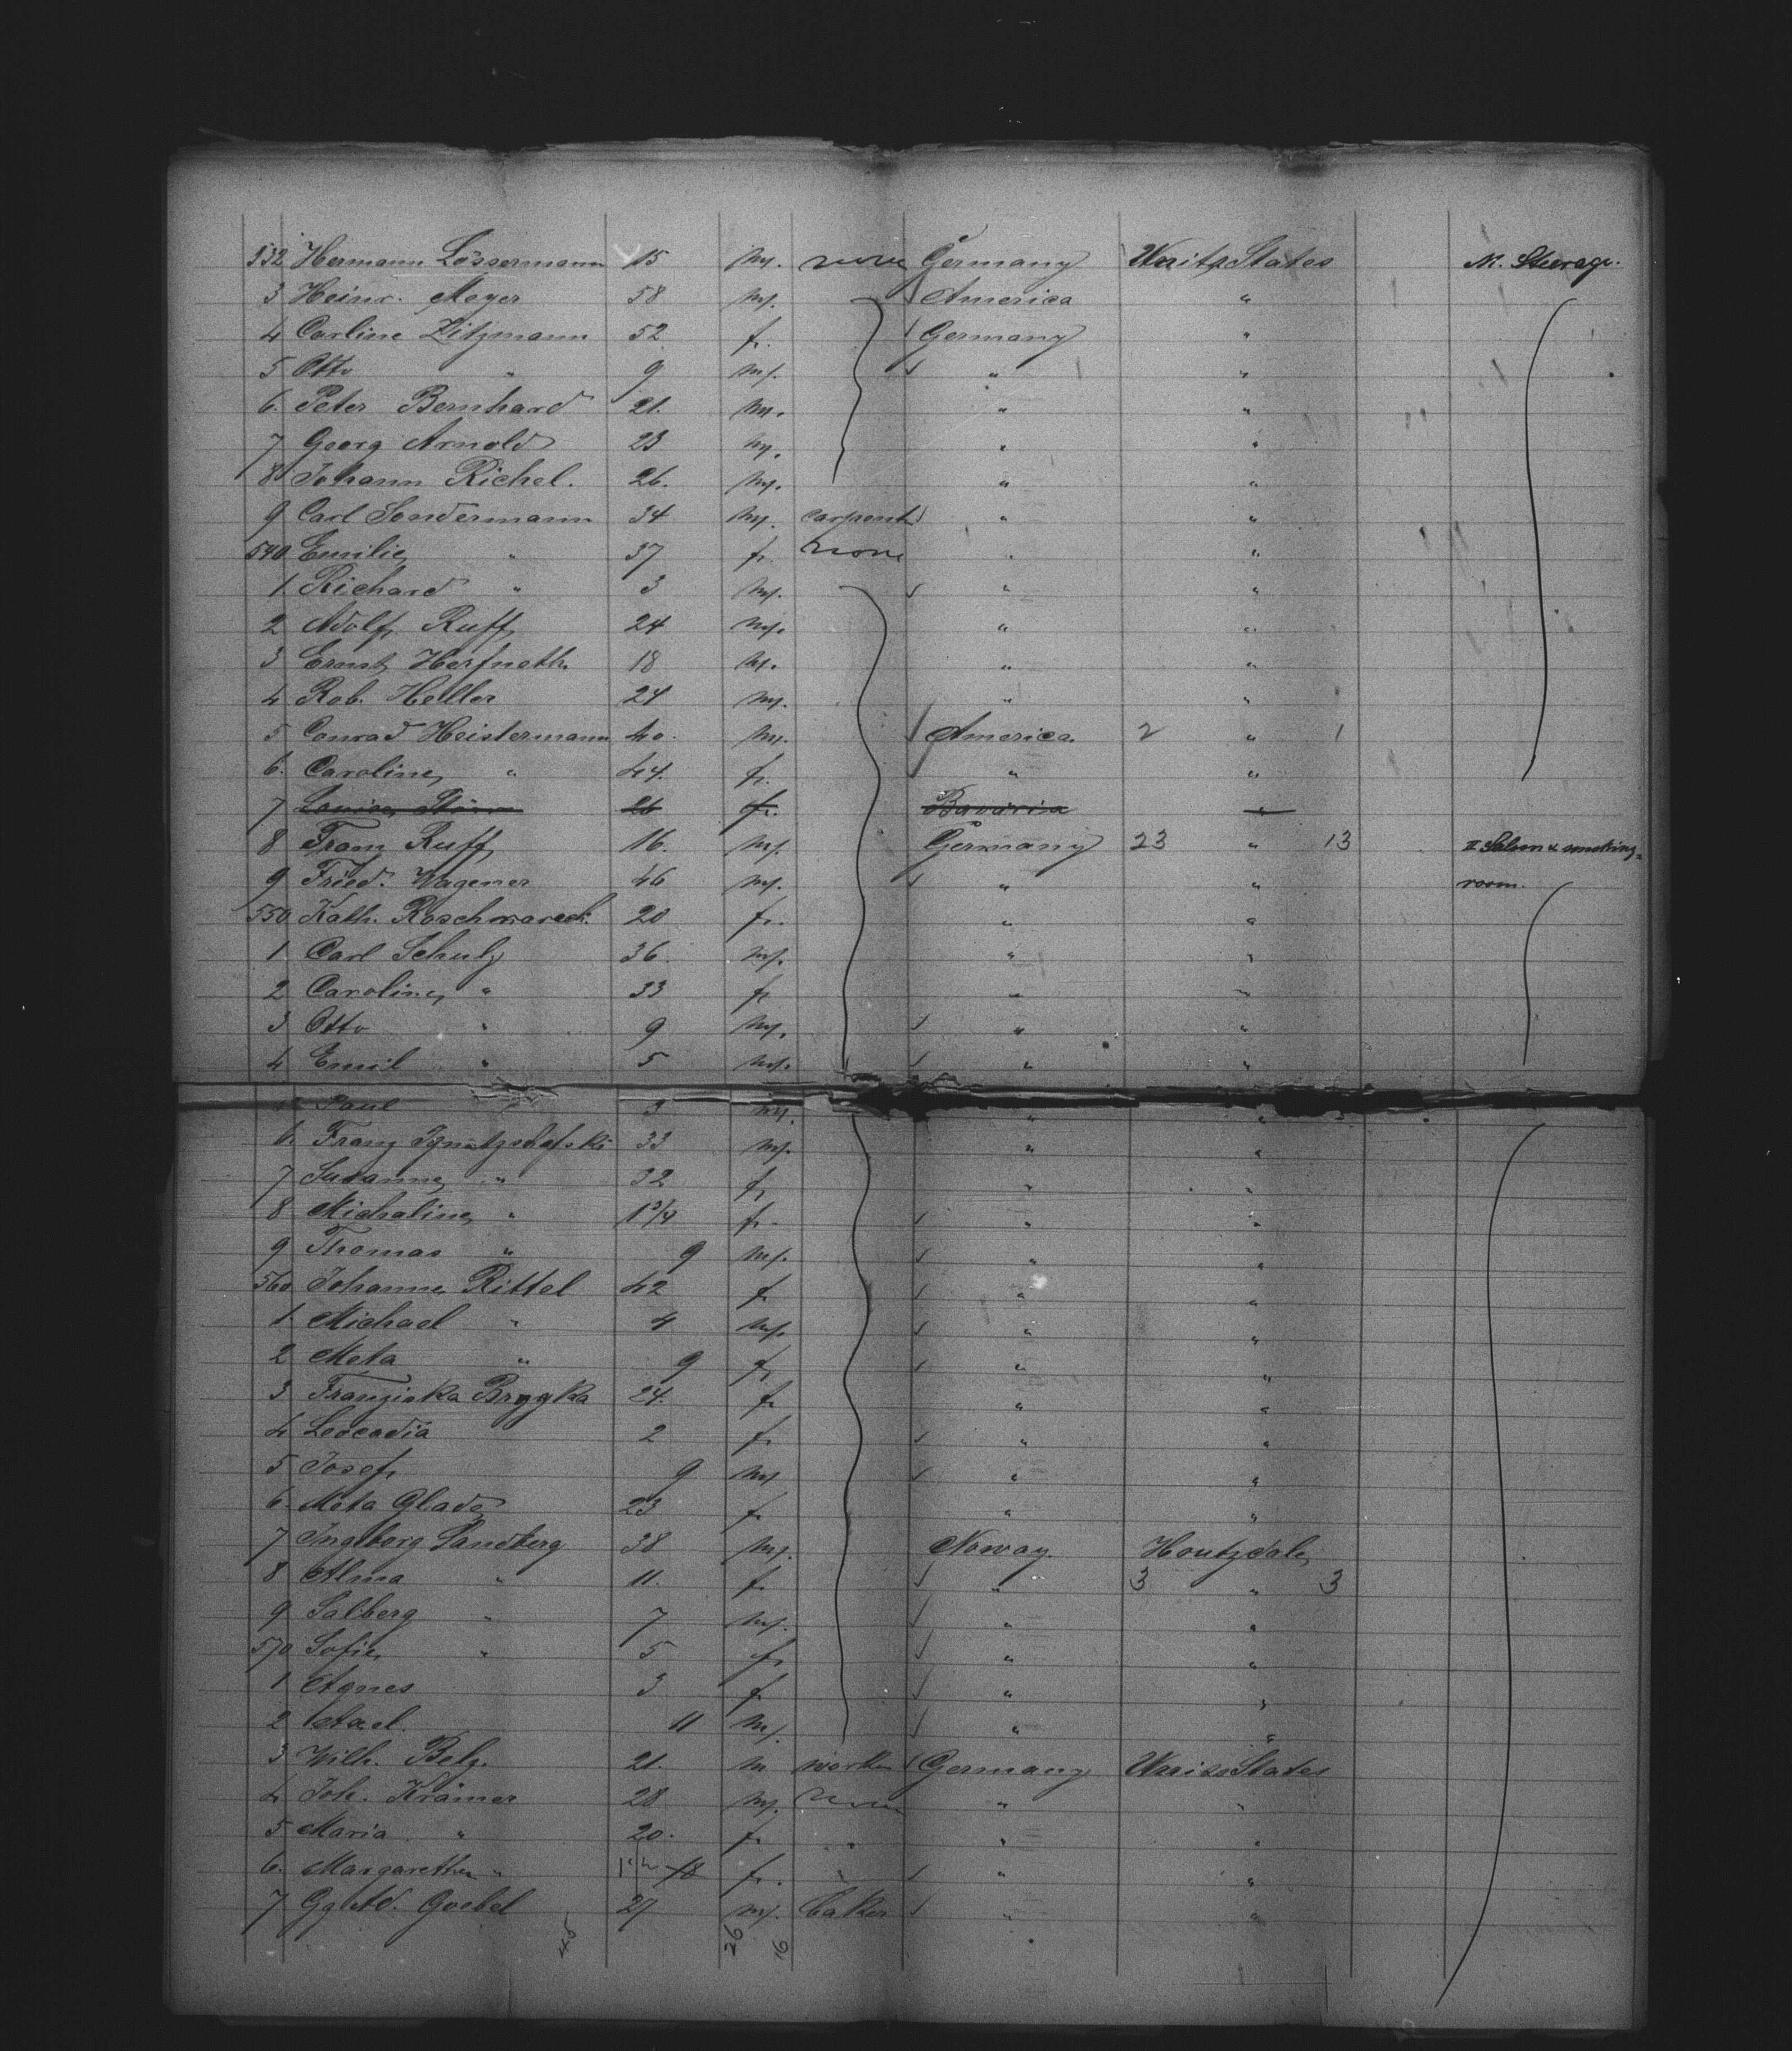 532 Hermann Lössermann 15 m. none Germany Unit. States M. Steerage.
3 Heinr. Meyer 58 m. America "
4 Carline Zitzmann 52 f. Germany "
5 Otto " 9 m. " "
6. Peter Bernhard 21. m. " "
7 Georg Arnold 23 m. " "
8 Johann Richel. 26. m. " "
9 Carl Sondermann 34 m. carpent. " "
540 Emilie " 37 f. none " "
1 Richard " 3 m. " "
2 Adolf Ruff 24 m. " "
3 Ernst 18 m. " "
4 Rob. Heller 24 m. " "
5 Conrad Heistermann 40. m. America. 2 " 1
6. Caroline " 44. f. " "
7 Louise 26 f. Bavaria "
8 Franz Ruff 16. m. Germany 23 " 13 II Saloon & smoking-
9 Fried. Wagener 46 m. " " room.
550 Kath. 20 f. " "
1 Carl Schulz 36. m. " "
2 Caroline " 33 f. " "
3 Otto " 9 m. " "
4 Emil " 5 m. " "
5 Paul " 3 m. " "
6. Franz 33 m. " "
7 Susanne " 32 f. " "
8 Michaline " 1 3/4 f. " "
9 Thomas " 9 m. " "
560 Johanne Rittel 42 f. " "
1 Michael " 4 m. " "
2 Meta " 9 f. " "
3 Franziska 24. f. " "
4 Leocadia 2 f. " "
5 Josef 9 m. " "
6. Meta Glade 23 f. " "
7 Ingeborg Sandberg 38 m. Norway. Houtzdale
8 Alma " 11. f. " 3 " 3
9 Salberg " 7 m. " "
570 Sofie " 5 f. " "
1 Agnes 3 f. " "
2 Axel. 11 m. " "
3 Wilh. Belz. 21. m. worker Germany Unit. States
4 Joh. Krämer 28 m. none " "
5 Maria " 20. f. " " "
6. Margarethe " f. " " "
7 Goebel 29 m. baker " "
45 26 16